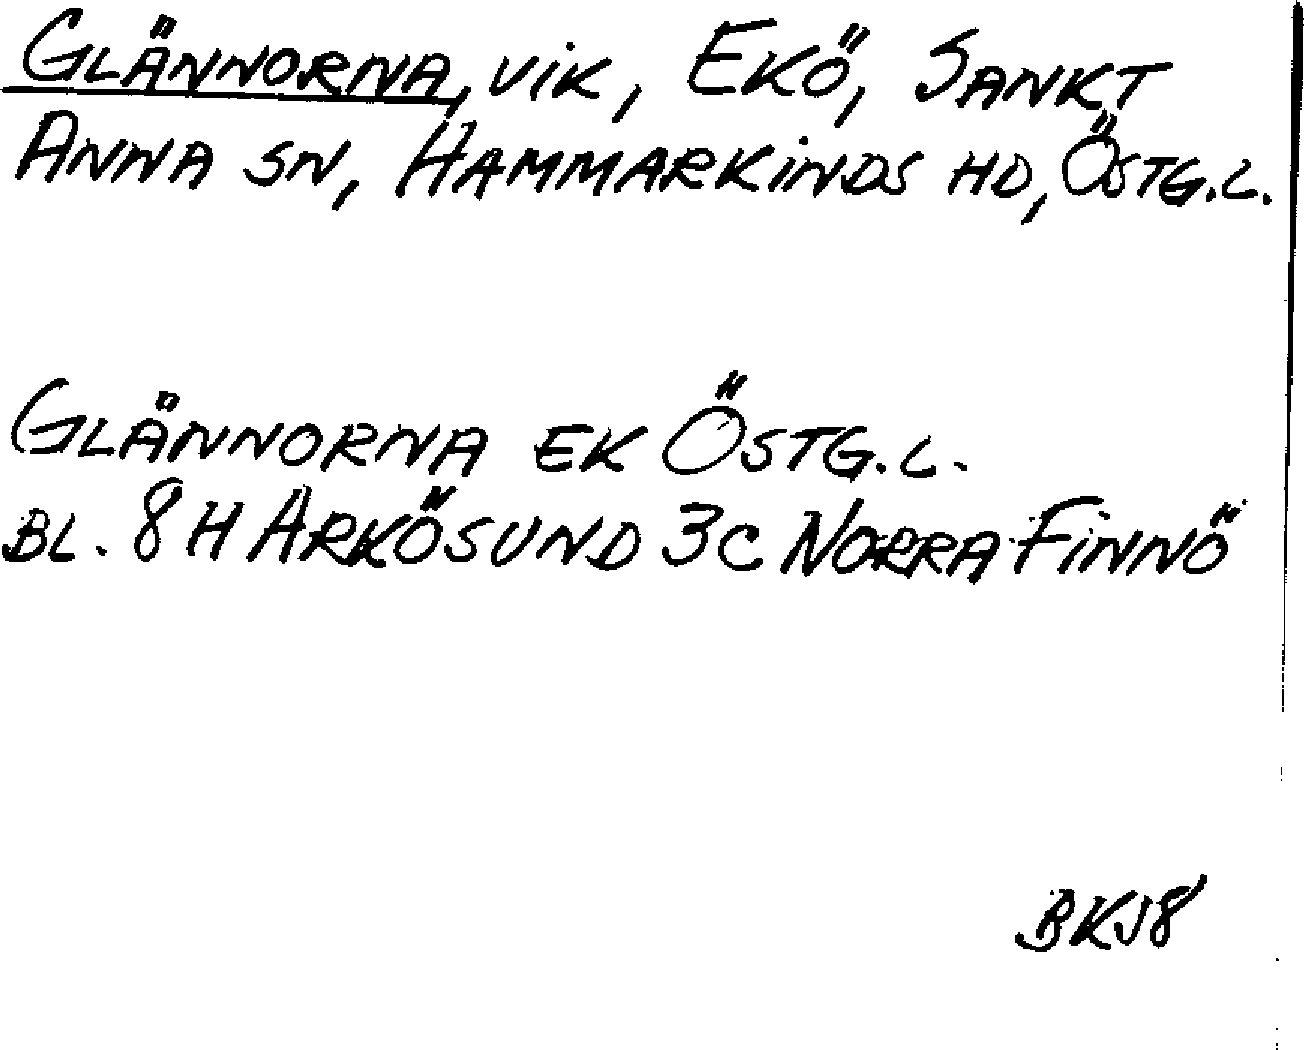 GLÄNNORNA, VIK, EKÖ, SANKT
ANNA SN, HAMMARKINDS HD, ÖSTG.L.
GLÄNNORNA EK ÖSTG.L.
BL. 8H ARKÖSUND 3C NORRA FINNÖ
BKJ8